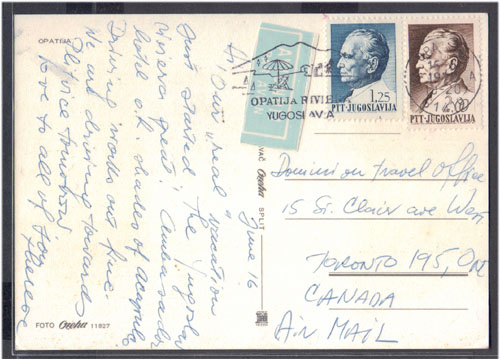 OPATIJA
June 16
Hi! Our "real" vacation
just started, the Yugoslav
riviera great, Ambasador
hotel o.k. shades of Acapulco
Driving works out fine.
We are driving towards
Plitvice tomorrow
love to all of you
FOTO Ozeha 11827
Ozeha SPLIT
PAR AVION
OPATIJA RIVIERA
YUGOSLAVIA
1,25
PTT-JUGOSLAVIJA
PTT-JUGOSLAVIJA
Dominion Travel Office
15 St. Clair ave West
TORONTO 195, On
CANADA
AIR MAIL